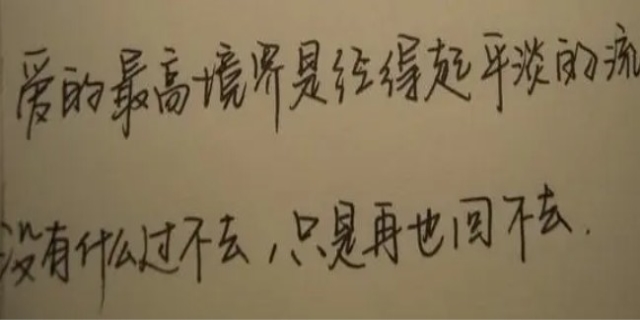 爱的最高境界是经得起平淡的流
没有什么过不去,只是再也回不去.